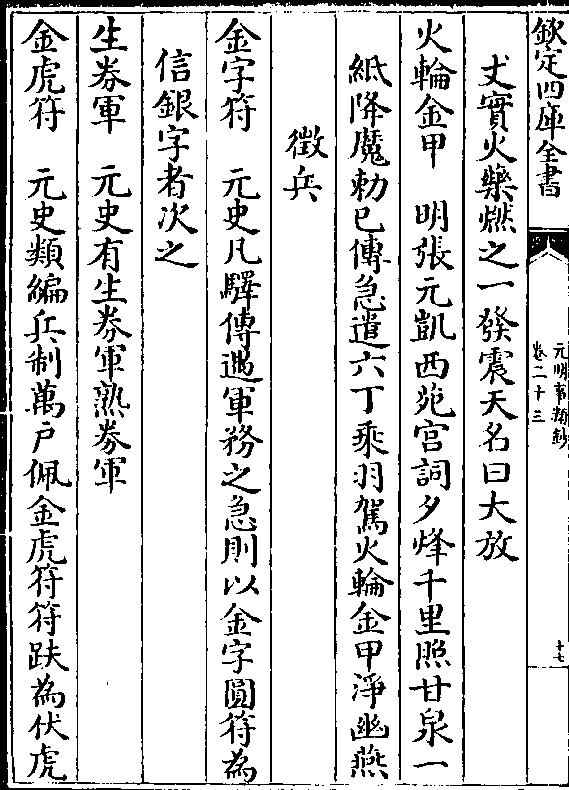 欽定四庫全書
元明事類鈔
卷二十三
十七
丈實火藥燃之一發震天名曰大放
火輪金甲　明張元凱西苑宫詞夕烽千里照甘泉一
紙降魔勅已傳急遣六丁乘羽駕火輪金甲淨幽燕
徵兵
金字符　元史凡驛傳遇軍務之急則以金字圓符為
信銀字者次之
生券軍　元史有生券軍熟券軍
金虎符　元史類編兵制萬户佩金虎符符趺為伏虎